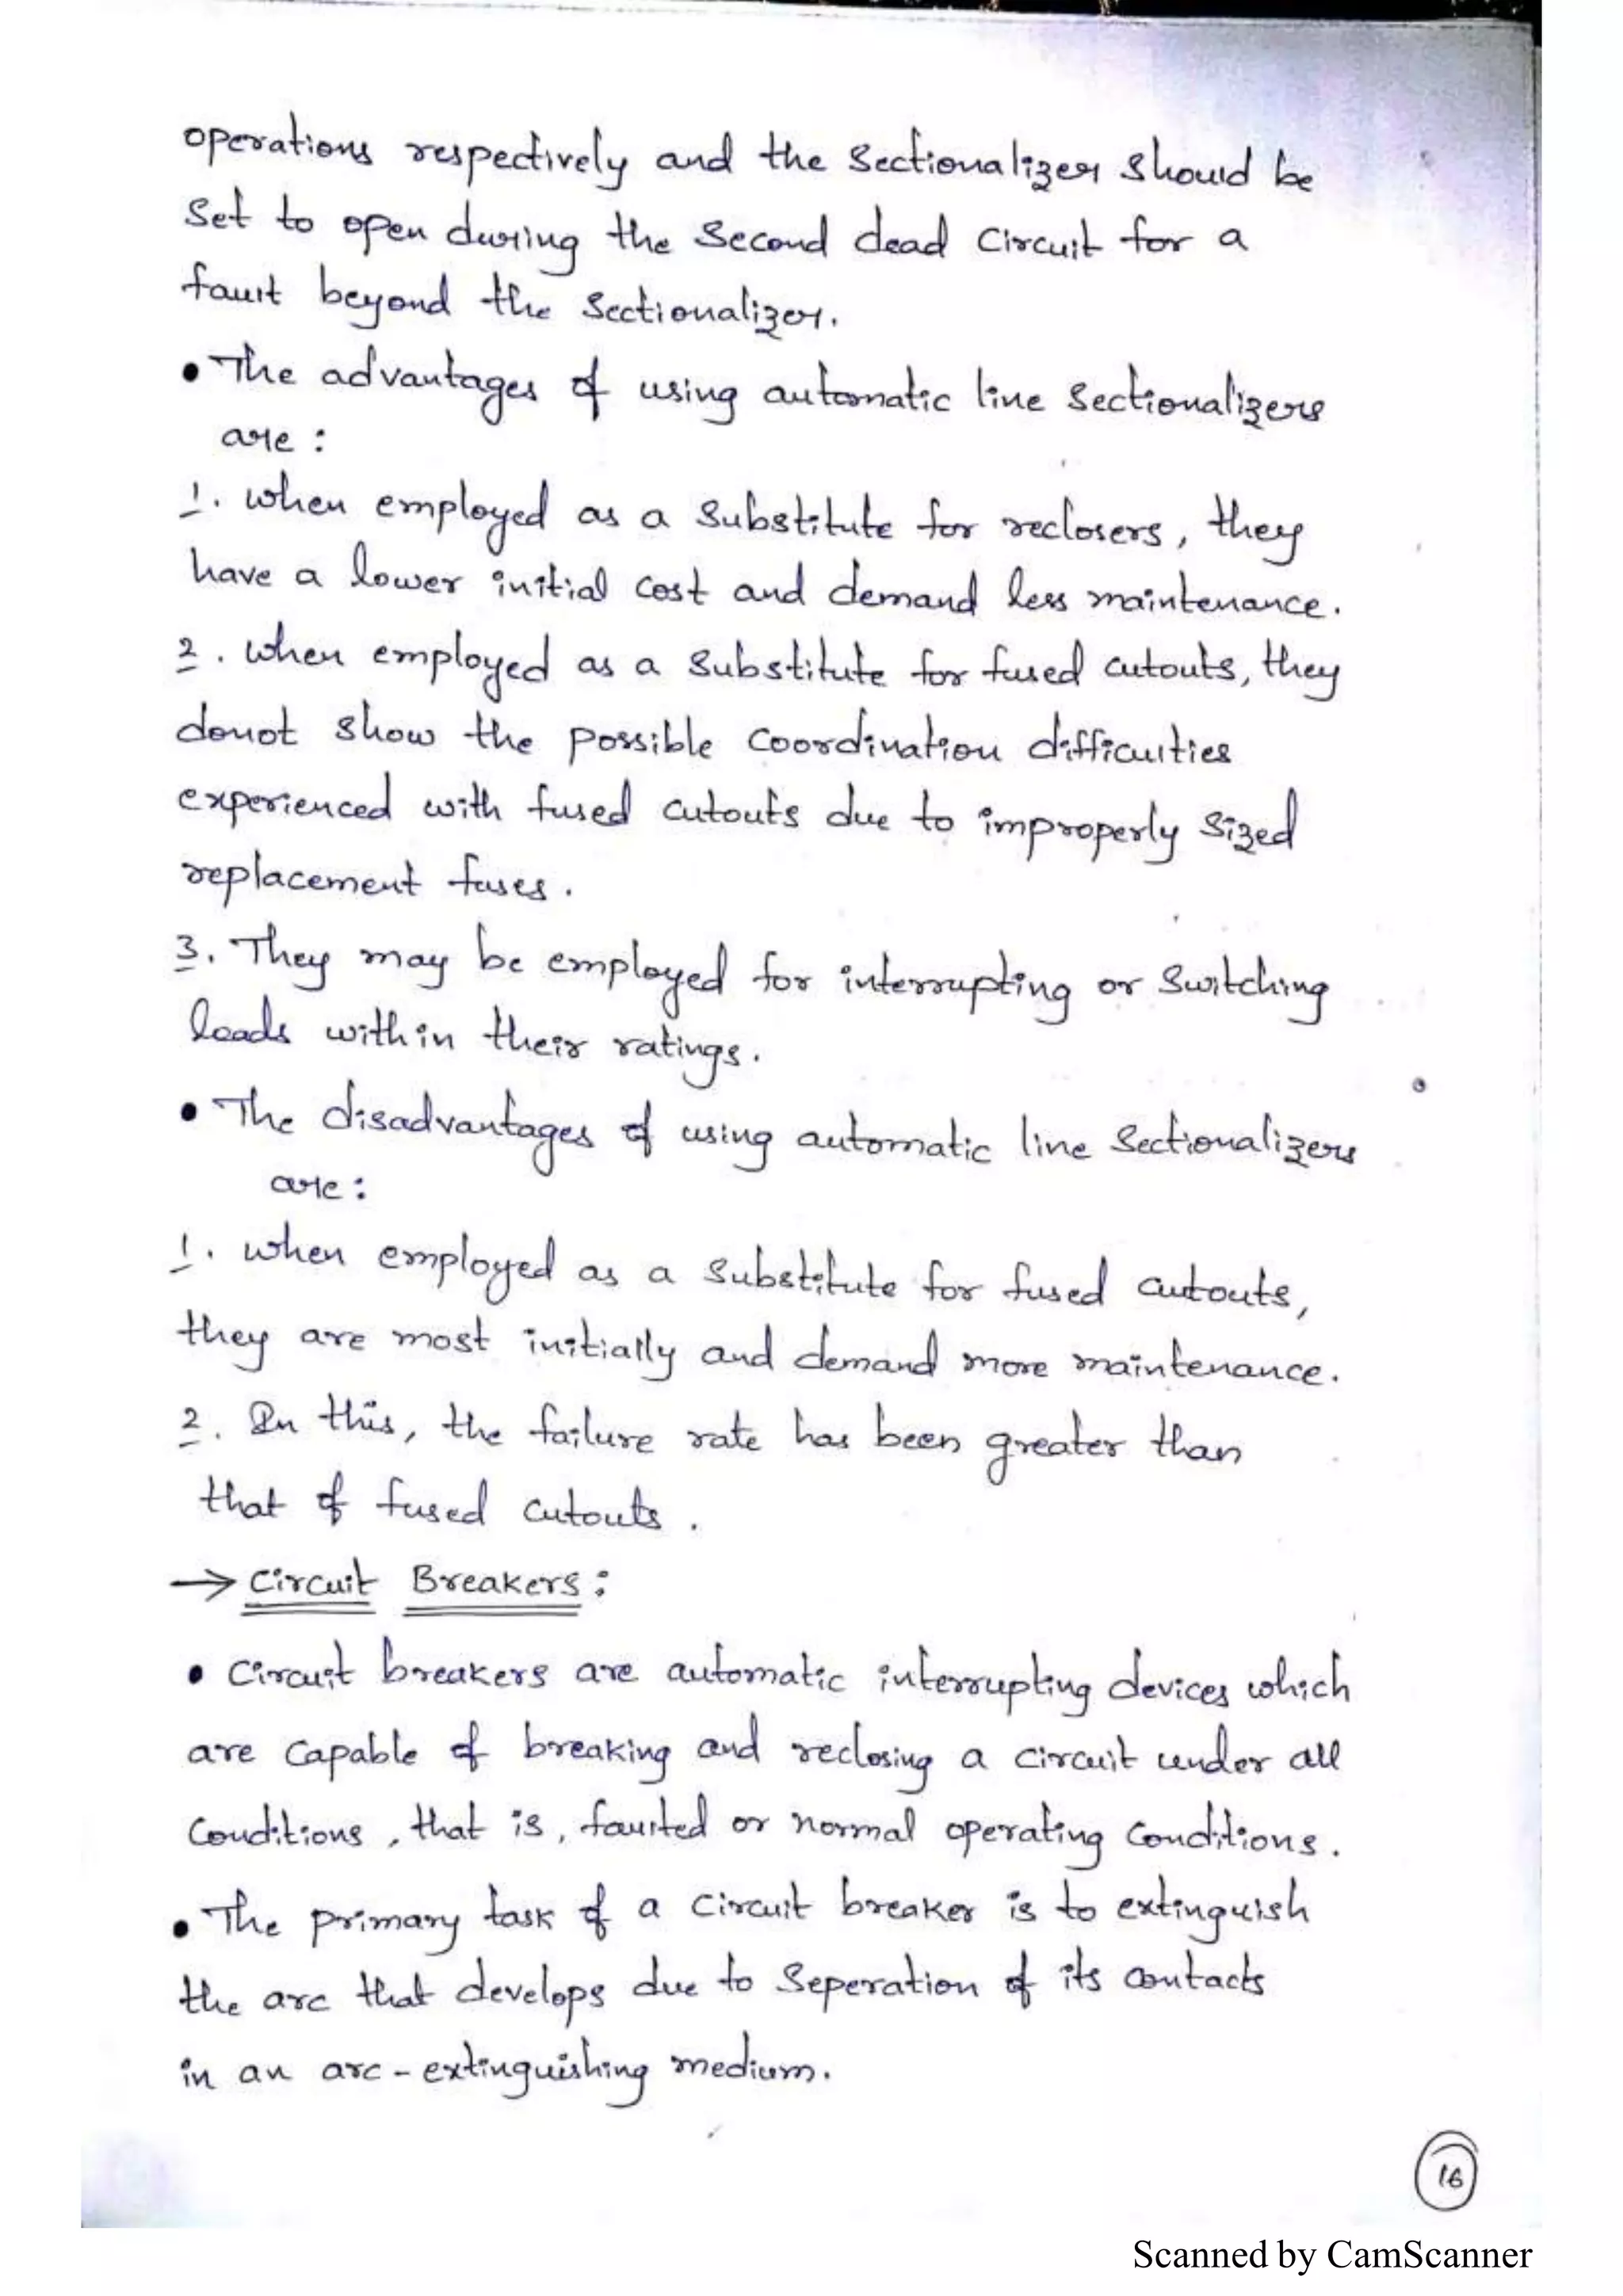 operations respectively and the Sectionalizer should be
Set to open during the Second dead Circuit for a
fault beyond the Sectionalizer.
• The advantages of using automatic line Sectionalizers
are :
1. when employed as a Substitute for reclosers, they
have a lower initial cost and demand less maintenance.
2. when employed as a Substitute for fused cutouts, they
donot show the possible coordination difficulties
experienced with fused cutouts due to improperly sized
replacement fuses.
3. They may be employed for interrupting or Switching
loads within their ratings.
• The disadvantages of using automatic line Sectionalizers
are :
1. when employed as a Substitute for fused cutouts,
they are most initially and demand more maintenance.
2. In this, the failure rate has been greater than
that of fused cutouts.
→ Circuit Breakers :
• Circuit breakers are automatic interrupting devices which
are capable of breaking and reclosing a circuit under all
Conditions, that is, faulted or normal operating Conditions.
• The primary task of a circuit breaker is to extinguish
the arc that develops due to Seperation of its contacts
in an arc-extinguishing medium.
16
Scanned by CamScanner